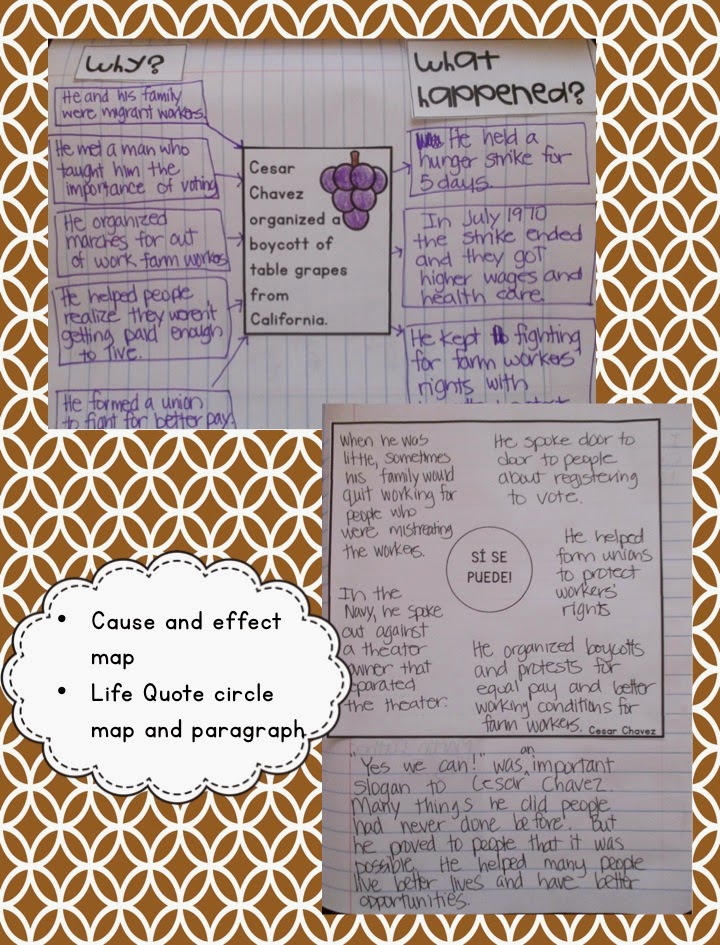 Why?
He and his family
were migrant workers.
He met a man who
taught him the
importance of voting
He organized
marches for out
of work farm workers
He helped people
realize they weren't
getting paid enough
to live.
He formed a union
to fight for better pay.
Cesar
Chavez
organized a
boycott of
table grapes
from
California.
What
happened?
He held a
hunger strike for
5 days.
In July 1970
the strike ended
and they got
higher wages and
health care.
He kept fighting
for farm workers'
rights with
When he was
little, sometimes
his family would
quit working for
people who
were mistreating
the workers.
He spoke door to
door to people
about registering
to vote.
SÍ SE
PUEDE!
He helped
form unions
to protect
workers'
rights
In the
Navy, he spoke
out against
a theater
owner that
eparated
the theater.
He organized boycotts
and protests for
equal pay and better
working conditions for
farm workers.
Cesar Chavez
"Yes we can!" was an important
slogan to Cesar Chavez.
Many things he did people
had never done before. But
he proved to people that it was
possible. He helped many people
live better lives and have better
opportunities.
• Cause and effect
map
• Life Quote circle
map and paragraph